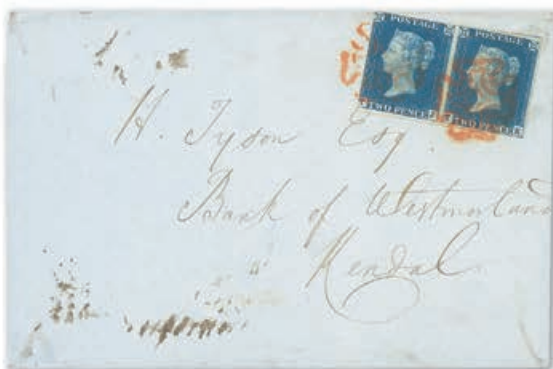 POSTAGE POSTAGE
TWO PENCE TWO PENCE
H. Tyson Esq.
Bank of Westmorland
Kendal